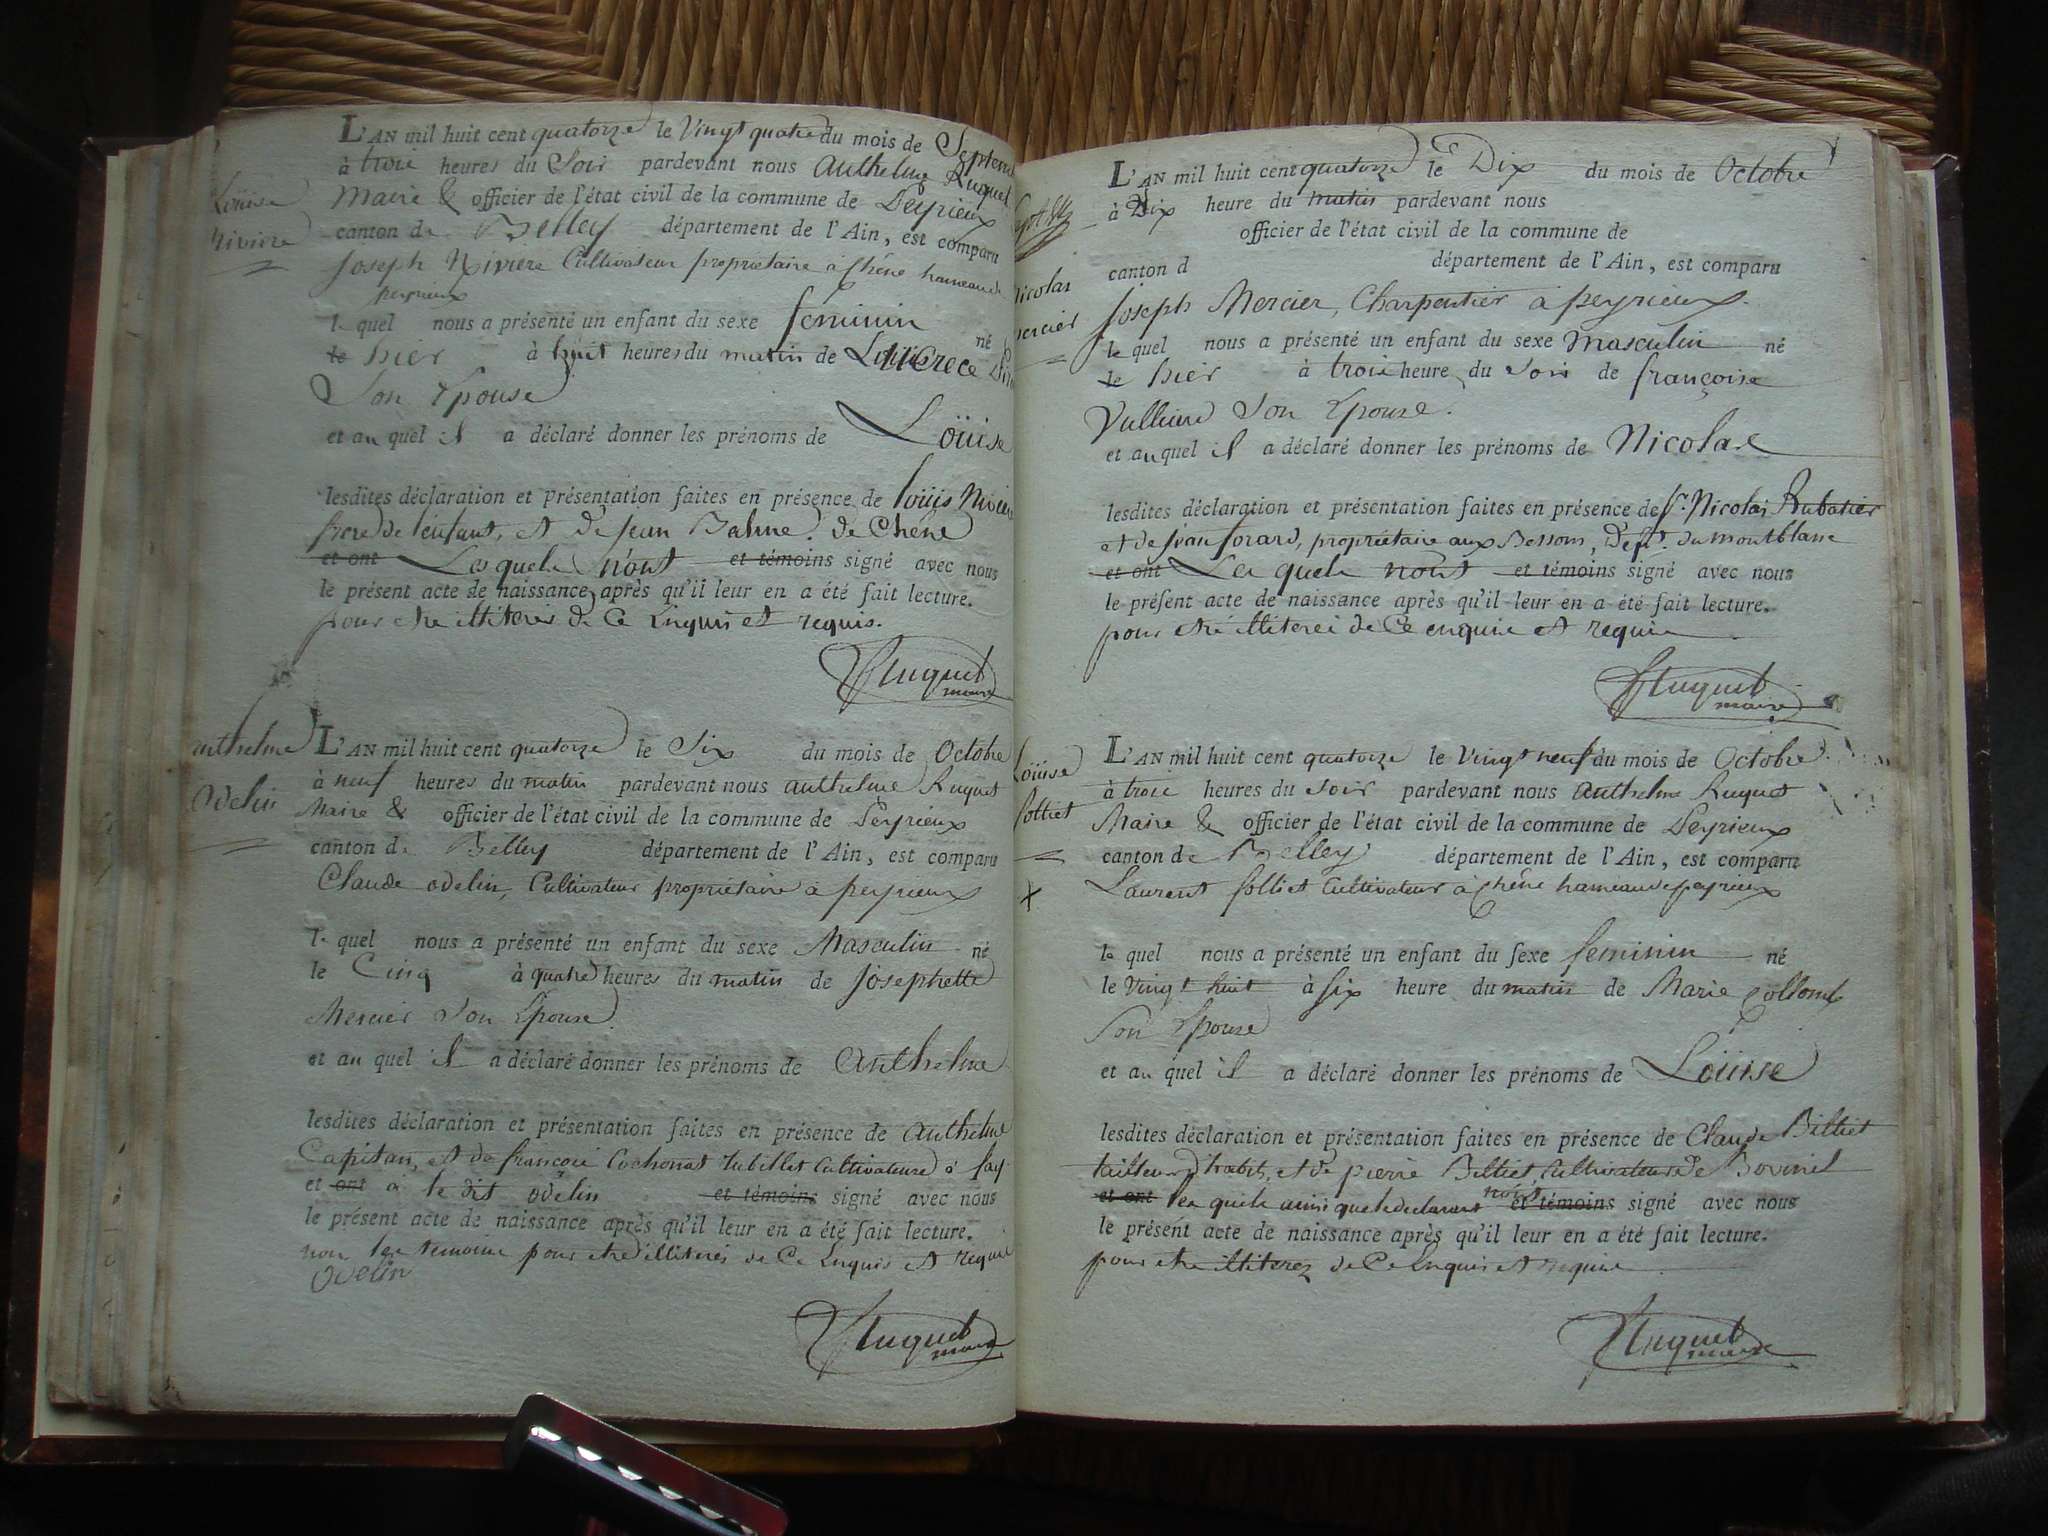 Louise
Riviere
L'AN mil huit cent quatorze le Vingt quatre du mois de Septem
à trois heures du Soir pardevant nous anthelme Ruquet
Maire & officier de l'état civil de la commune de Peyrieux
canton de Belley département de l'Ain, est comparu
Joseph Riviere Cultivateur propriétaire à Chêne hameau de
peyrieux
le quel nous a présenté un enfant du sexe feminin né
le hier à huit heures du matin de
Son Epouse
et au quel il a déclaré donner les prénoms de Loüise
lesdites déclaration et présentation faites en présence de loüis Rivier
frere de l'enfant, et de jean Balme de Chêne
et ont Les quels n'ont et témoins signé avec nous
le présent acte de naissance après qu'il leur en a été fait lecture.
pour etre illiterés de Ce Enquis et requis.
Ruquet
maire
anthelme
Odelin
L'AN mil huit cent quatorze le Six du mois de Octobre
à neuf heures du matin pardevant nous anthelme Ruquet
Maire & officier de l'état civil de la commune de Peyrieux
canton de Belley département de l'Ain, est comparu
Claude odelin, Cultivateur propriétaire à peyrieux
le quel nous a présenté un enfant du sexe Masculin né
le Cinq à quatre heures du matin de Josephette
Mercier Son Epouse
et au quel il a déclaré donner les prénoms de Anthelme
lesdites déclaration et présentation faites en présence de anthelme
Capitan, et de françois Cochonat Cultivateurs à fay
et ont a le dit odelin et témoins signé avec nous
le présent acte de naissance après qu'il leur en a été fait lecture.
non les temoins pour etre illiterés de Ce Enquis et requis
Odelin
Ruquet
maire
Nicolas
Mercier
L'AN mil huit cent quatorze le Dix du mois de Octobre
à Dix heure du matin pardevant nous
officier de l'état civil de la commune de
canton d département de l'Ain, est comparu
Joseph Mercier, Charpentier à peyrieux.
le quel nous a présenté un enfant du sexe Masculin né
le hier à trois heure du Soir de françoise
Son Epouse.
et au quel il a déclaré donner les prénoms de Nicolas
lesdites déclaration et présentation faites en présence de Sr. Nicolas Rubatier
et de jean forard, propriétaire aux Bessons, Dept. du montblanc
et ont Les quels n'ont et témoins signé avec nous
le présent acte de naissance après qu'il leur en a été fait lecture.
pour etre illiterés de Ce enquis et requis
Ruquet
maire
Loüise
folliet
L'AN mil huit cent quatorze le Vingt neuf du mois de Octobre
à trois heures du soir pardevant nous anthelme Ruquet
Maire & officier de l'état civil de la commune de Peyrieux
canton de Belley département de l'Ain, est comparu
X
Laurent folliet Cultivateur à Chêne hameau de peyrieux
le quel nous a présenté un enfant du sexe feminin né
le Vingt huit à six heure du matin de Marie Collomb
Son Epouse
et au quel il a déclaré donner les prénoms de Loüise
lesdites déclaration et présentation faites en présence de Claude Billiet
tailleur d'habits, et de pierre Billiet, Cultivateurs de Bovinel
n'ont
et ont les quels ainsi que le declarant et témoins signé avec nous
le présent acte de naissance après qu'il leur en a été fait lecture.
pour etre illiterez de Ce Enquis et requis
Ruquet
maire